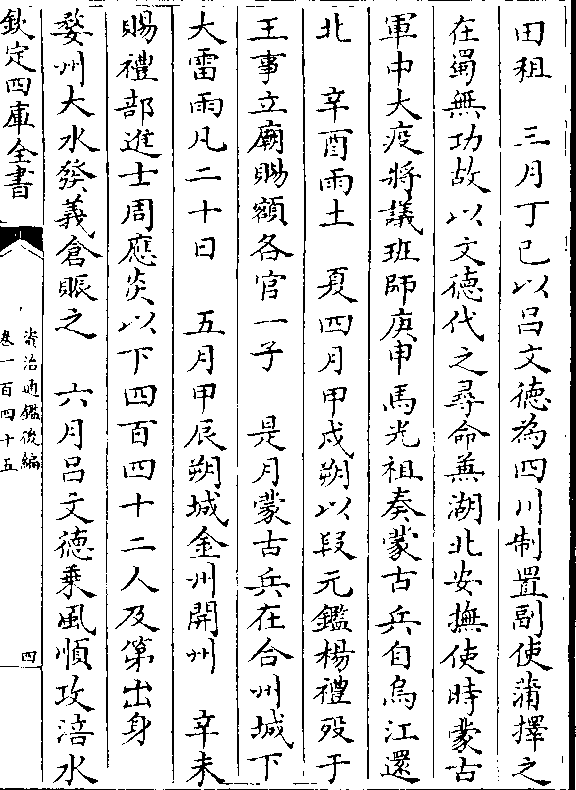 田租　三月丁已以吕文德為四川制置副使蒲擇之
在蜀無功故以文德代之尋命兼湖北安撫使時蒙古
軍中大疫將議班師庚申馬光祖奏蒙古兵自烏江還
北　辛酉雨土　夏四月甲戌朔以段元鑑楊禮殁于
王事立廟賜額各官一子　是月蒙古兵在合州城下
大雷雨凡二十日　五月甲辰朔城金州開州　辛未
賜禮部進士周應炎以下四百四十二人及第出身
婺州大水發義倉賑之　六月吕文德乗風順攻涪水
欽定四庫全書
資治通鑑後編
卷一百四十五
四